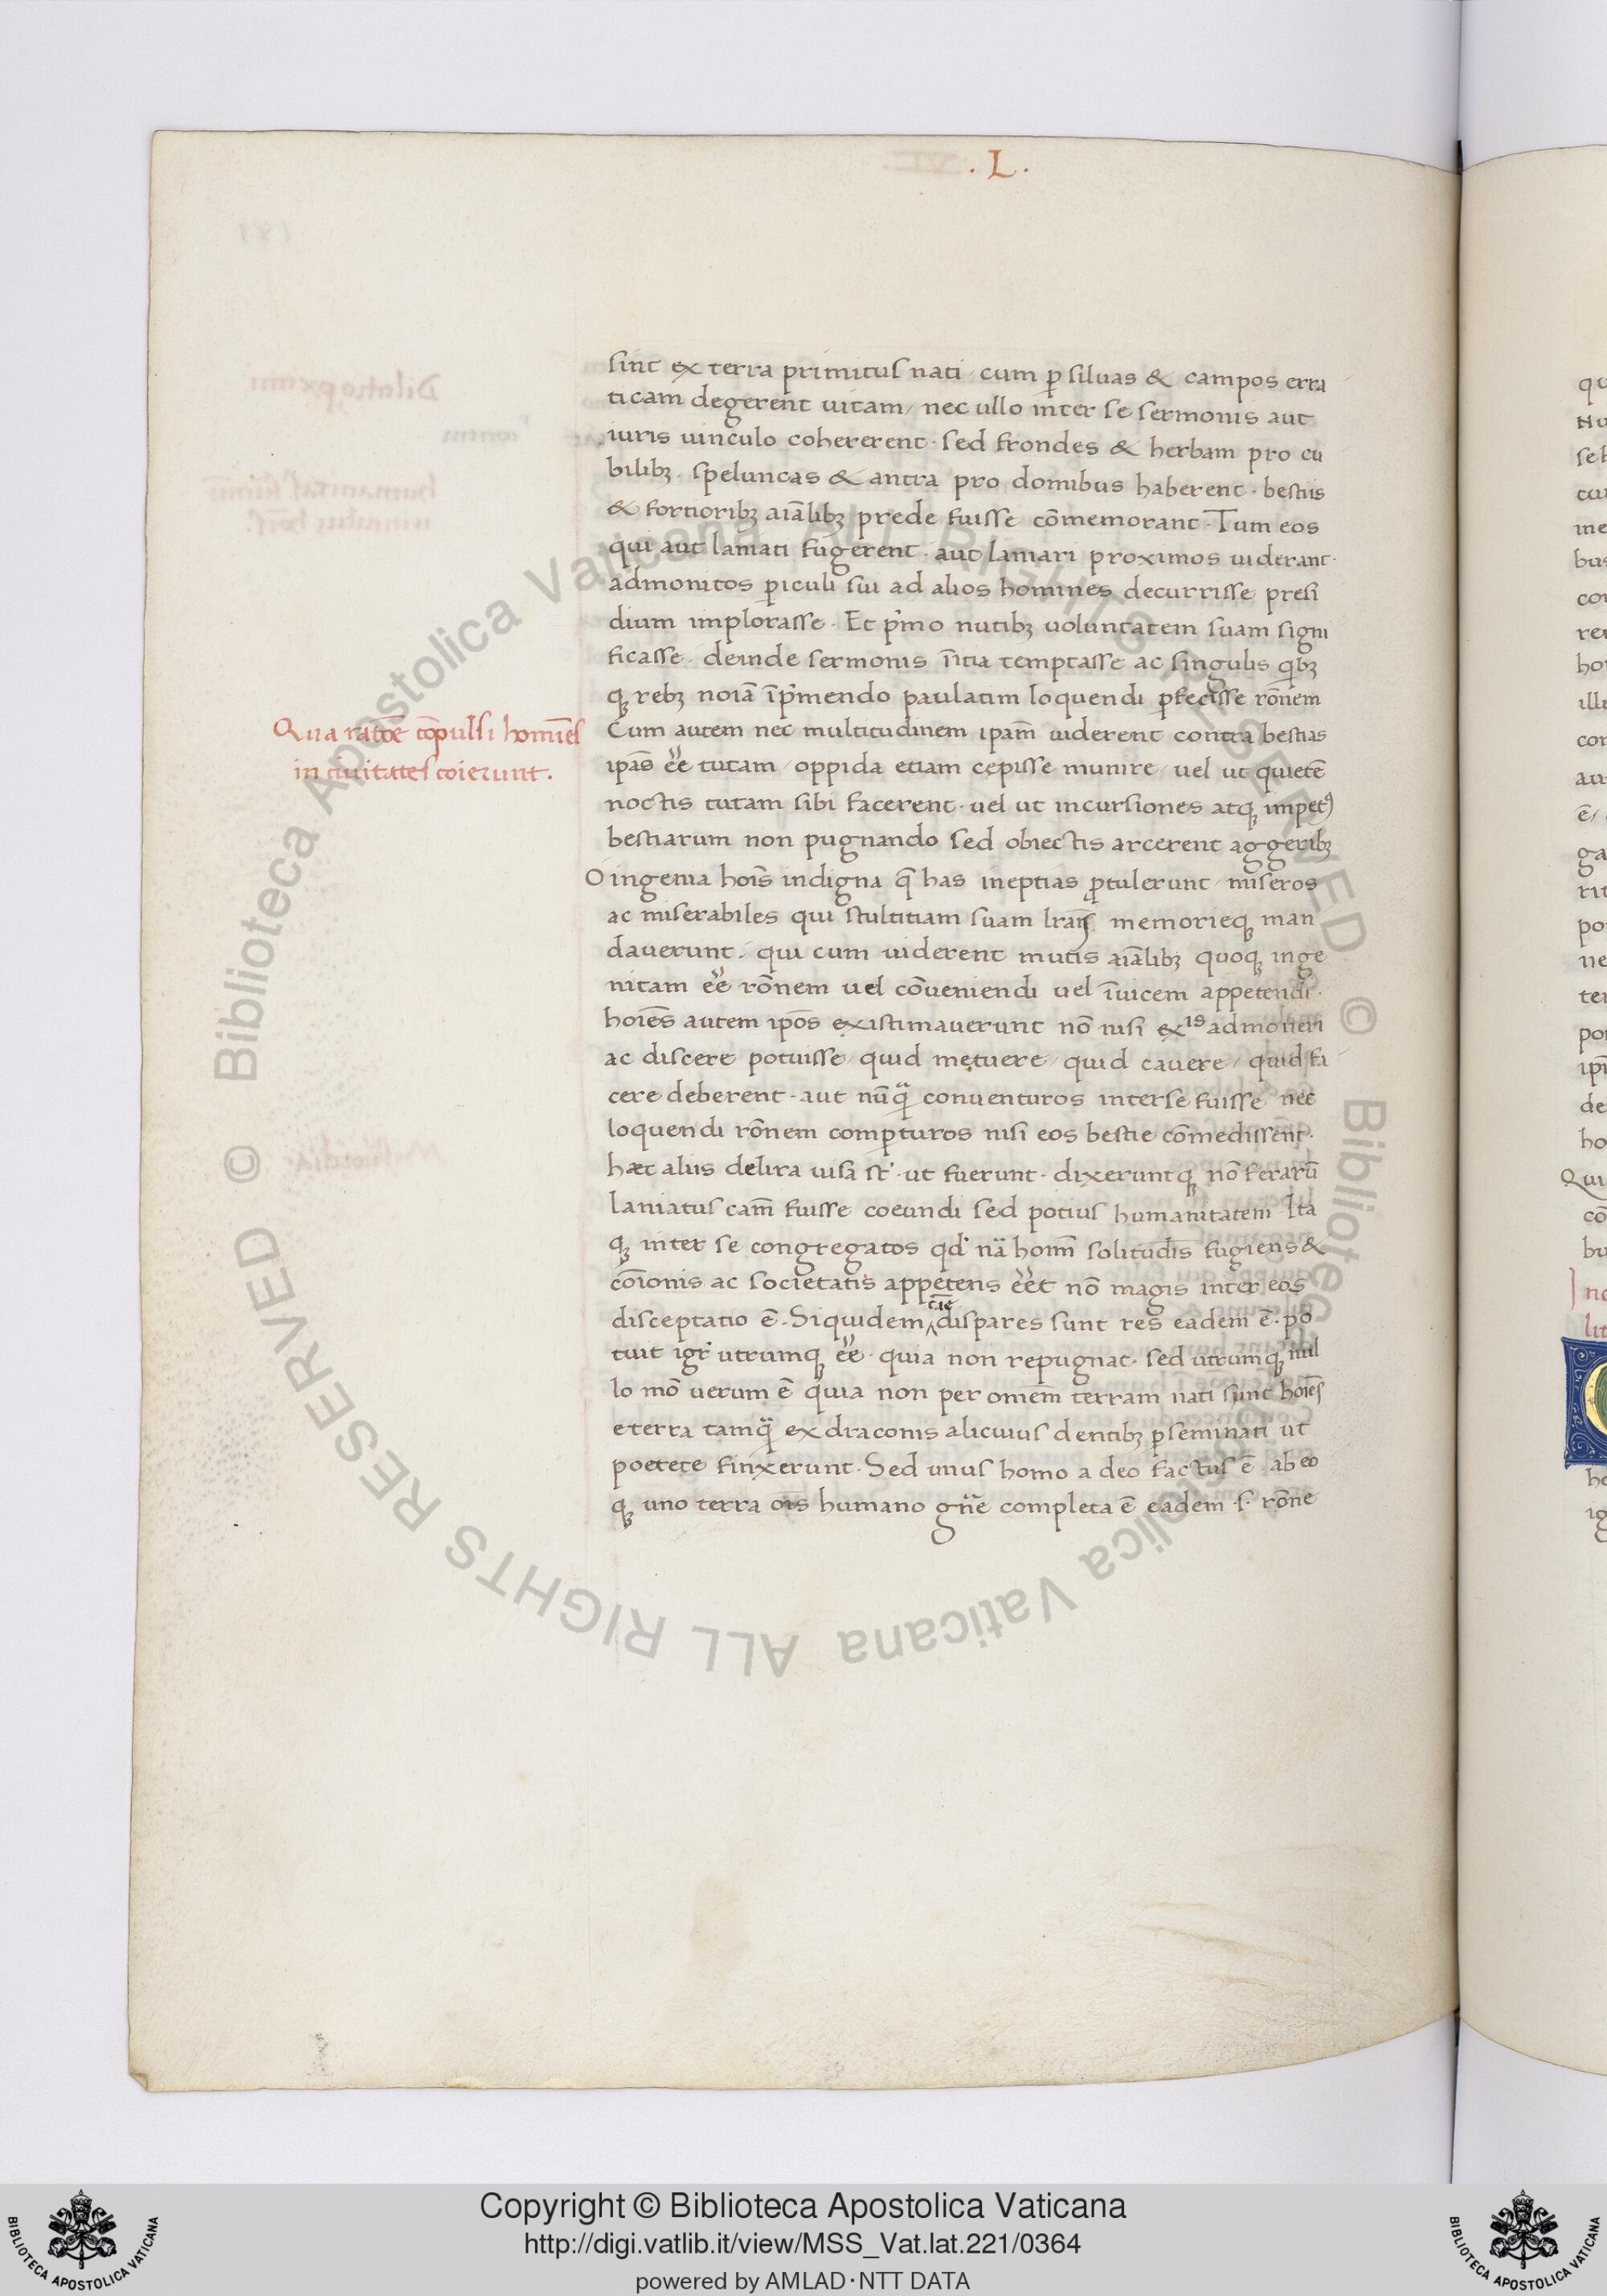 . L .
sint ex terra primitus nati · cum ꝑ siluas & campos erra
ticam degerent uitam / nec ullo inter se sermonis aut
iuris uinculo cohererent · sed frondes & herbam pro cu
bilibꝫ · speluncas & antra pro domibus haberent · bestiis
& fortioribꝫ aiãlibꝫ prede fuisse cōmemorant · Tum eos
qui aut laniati fugerent · aut laniari proximos uiderant ·
admonitos ꝑiculi sui ad alios homines decurrisse presi
dium implorasse · Et p̃mo nutibꝫ uoluntatem suam signi
ficasse · deinde sermonis ĩitia temptasse ac singulis q̃bꝫ
qꝫ rebꝫ noĩa ĩp̃mendo paulatim loquendi ꝑfecisse rōnem
Qua ratōe cōpulsi homĩes
in ciuitates coierunt .
Cum autem nec multitudinem ipam̃ uiderent contra bestias
ipãs ẽe tutam / oppida etiam cępisse munire / uel ut quietē
noctis tutam sibi facerent · uel ut incursiones atqꝫ impetꝰ
bestiarum non pugnando sed obiectis arcerent aggeribꝫ
O ingenia hoĩs indigna q̃ has ineptias ꝓtulerunt / miseros
ac miserabiles qui stultitiam suam lrãis memorieqꝫ man
dauerunt · qui cum uiderent mutis aiãlibꝫ quoqꝫ inge
nitam ẽe rōnem uel cōueniendi uel ĩuicem appetendi ·
hoĩes autem ipõs existimauerunt nō nisi ex is admoneri
ac discere potuisse / quid metuere / quid cauere / quid fa
cere deberent · aut nũq̃ conuenturos inter se fuisse nec
loquendi rōnem comꝑturos nisi eos bestie cōmedissent ·
hæc aliis delira uisa st̃ · ut fuerunt · dixeruntqꝫ nō ferarũ
laniatus cam̃ fuisse coeundi sed potius humanitatem Ita
qꝫ inter se congregatos qd̃ nã hoim̃ solitudĩs fugiens &
cōĩonis ac societatis appetens ẽet nō magis inter eos
disceptatio ē · Siquidem ‸ cãe dispares sunt res eadem ē · po
tuit igr̃ utrumqꝫ ẽe · quia non repugnat · sed utrumqꝫ nul
lo mō uerum ē quia non per omem̃ terram nati sunt hoĩes
e terra tamq̃ ex draconis alicuius dentibꝫ ꝑseminati ut
poetete finxerunt · Sed unus homo a deo factus ē · ab eo
qꝫ uno terra oĩs humano gñe completa ē eadem · s · rōne
Copyright © Biblioteca Apostolica Vaticana
http://digi.vatlib.it/view/MSS_Vat.lat.221/0364
powered by AMLAD·NTT DATA
BIBLIOTECA APOSTOLICA VATICANA
BIBLIOTECA APOSTOLICA VATICANA
© Biblioteca Apostolica Vaticana ALL RIGHTS RESERVED © Biblioteca Apostolica Vaticana ALL RIGHTS RESERVED